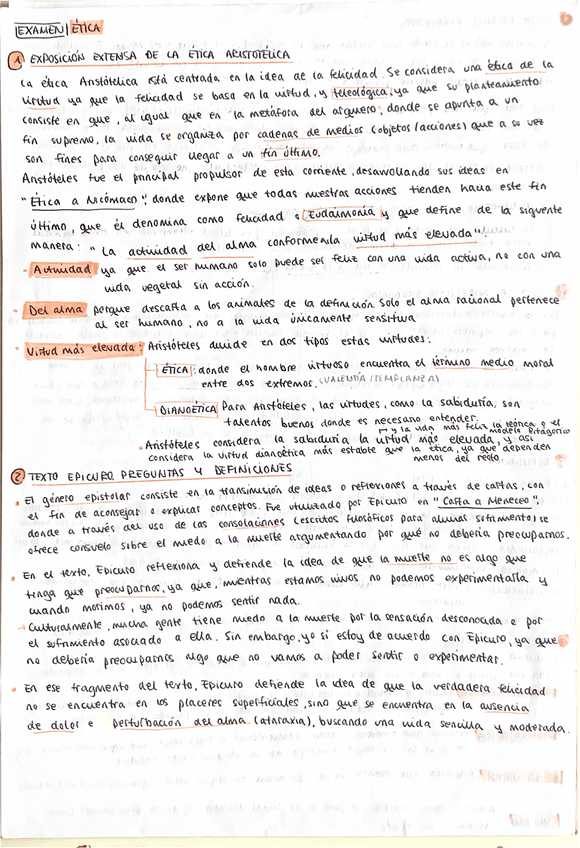 EXAMEN | ÉTICA
1 EXPOSICIÓN EXTENSA DE LA ÉTICA ARISTOTÉLICA
La ética Aristótelica está centrada en la idea de la felicidad. Se considera una ética de la
virtud ya que la felicidad se basa en la virtud, y teleológica, ya que su planteamiento
consiste en que, al igual que en la metáfora del arquero, donde se apunta a un
fin supremo, la vida se organiza por cadenas de medios (objetos/acciones) que a su vez
son fines para conseguir llegar a un fin último.
Aristóteles fue el principal propulsor de esta corriente, desarrollando sus ideas en
"Ética a Nicómaco", donde expone que todas nuestras acciones tienden hacia este fin
último, que él denomina como felicidad o Eudaimonía y que define de la siguente
manera: "La actividad del alma conforme a la virtud más elevada".
- Actividad ya que el ser humano solo puede ser feliz con una vida activa, no con una
vida vegetal sin acción.
- Del alma porque descarta a los animales de la definición. Solo el alma racional pertenece
al ser humano, no a la vida únicamente sensitiva
- Virtud más elevada: Aristóteles divide en dos tipos estas virtudes:
ÉTICA: donde el hombre virtuoso encuentra el término medio moral
entre dos extremos. (VALENTÍA/TEMPLANZA)
DIANOÉTICA Para Aristóteles, las virtudes, como la sabiduría, son
talentos buenos donde es necesario entender.
y la vida más feliz la teórica o el
modelo Pitagórico
• Aristóteles considera la sabiduría la virtud más elevada, y así
considera la virtud dianoética más estable que la ética, ya que dependen
menos del resto.
2 TEXTO EPICURO PREGUNTAS Y DEFINICIONES
• El género epistolar consiste en la transmisión de ideas o reflexiones a través de cartas, con
el fin de aconsejar o explicar conceptos. Fue utilizado por Epicuro en "Carta a Meneceo",
donde a través del uso de las consolaciones (escritos filosóficos para aliviar sufrimento) se
ofrece consuelo sobre el miedo a la muerte argumentando por qué no debería preocuparnos.
• En el texto, Epicuro reflexiona y defiende la idea de que la muerte no es algo que
tenga que preocuparnos, ya que, mientras estamos vivos no podemos experimentarla y
cuando morimos, ya no podemos sentir nada.
→ Culturalmente, mucha gente tiene miedo a la muerte por la sensación desconocida o por
el sufrimiento asociado a ella. Sin embargo, yo si estoy de acuerdo con Epicuro, ya que
no debería preocuparnos algo que no vamos a poder sentir o experimentar.
• En ese fragmento del texto, Epicuro defiende la idea de que la verdadera felicidad
no se encuentra en los placeres superficiales, sino que se encuentra en la ausencia
de dolor e perturbación del alma (ataraxia), buscando una vida sencilla y moderada.